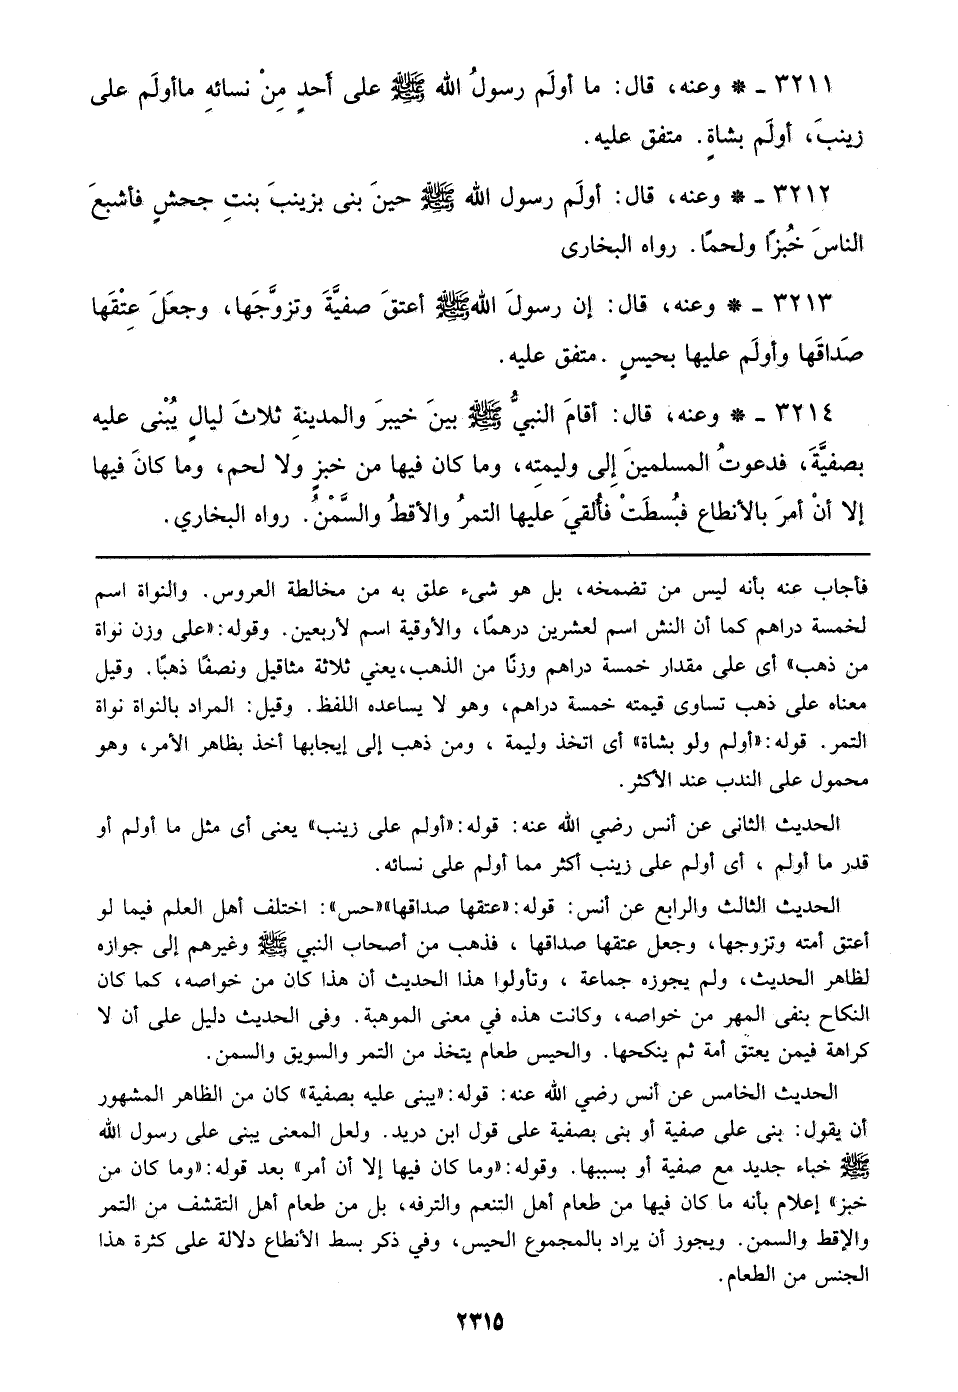 ٣٢١١ ـ * وعنه، قال: ما أولَم رسولُ الله ﷺ على أَحدٍ مِنْ نسائهِ ماأولَم على
زينبَ، أولَم بشاةٍ. متفق عليه.
٣٢١٢ ـ * وعنه، قال: أولَم رسول الله ﷺ حينَ بنى بزينبَ بنتِ جحشٍ فأشبعَ
الناسَ خُبزًا ولحمًا. رواه البخارى
٣٢١٣ ـ * وعنه، قال: إن رسولَ الله ﷺ أعتقَ صفيَّةَ وتزوَّجَها، وجعَلَ عِتْقَها
صَداقَها وأولَم عليها بحيسٍ .متفق عليه.
٣٢١٤ ـ * وعنه، قال: أقامَ النبيُّ ﷺ بينَ خيبرَ والمدينةِ ثلاثَ ليالٍ يُبْنى عليه
بصفيَّةَ، فدعوتُ المسلمينَ إلى وليمتِه، وما كان فيها من خبزٍ ولا لحم، وما كانَ فيها
إلا أنْ أمرَ بالأنطاع فبُسطَتْ فأُلقيَ عليها التمرُ والأقطُ والسَّمْنُ. رواه البخاري.
فأجاب عنه بأنه ليس من تضمخه، بل هو شىء علق به من مخالطة العروس. والنواة اسم
لخمسة دراهم كما أن النش اسم لعشرين درهمًا، والأوقية اسم لأربعين. وقوله:«على وزن نواة
من ذهب» أى على مقدار خمسة دراهم وزنًا من الذهب،يعني ثلاثة مثاقيل ونصفًا ذهبًا. وقيل
معناه على ذهب تساوى قيمته خمسة دراهم، وهو لا يساعده اللفظ. وقيل: المراد بالنواة نواة
التمر. قوله:«أولم ولو بشاة» أى اتخذ وليمة ، ومن ذهب إلى إيجابها أخذ بظاهر الأمر، وهو
محمول على الندب عند الأكثر.
الحديث الثانى عن أنس رضي الله عنه: قوله:«أولم على زينب» يعنى أى مثل ما أولم أو
قدر ما أولم ، أى أولم على زينب أكثر مما أولم على نسائه.
الحديث الثالث والرابع عن أنس: قوله:«عتقها صداقها»«حس»: اختلف أهل العلم فيما لو
أعتق أمته وتزوجها، وجعل عتقها صداقها ، فذهب من أصحاب النبي ﷺ وغيرهم إلى جوازه
لظاهر الحديث، ولم يجوزه جماعة ، وتأولوا هذا الحديث أن هذا كان من خواصه، كما كان
النكاح بنفى المهر من خواصه، وكانت هذه في معنى الموهبة. وفى الحديث دليل على أن لا
كراهة فيمن يعتق أمة ثم ينكحها. والحيس طعام يتخذ من التمر والسويق والسمن.
الحديث الخامس عن أنس رضي الله عنه: قوله:«يبنى عليه بصفية» كان من الظاهر المشهور
أن يقول: بنى على صفية أو بنى بصفية على قول ابن دريد. ولعل المعنى يبنى على رسول الله
ﷺ خباء جديد مع صفية أو بسببها. وقوله:«وما كان فيها إلا أن أمر» بعد قوله:«وما كان من
خبز» إعلام بأنه ما كان فيها من طعام أهل التنعم والترفه، بل من طعام أهل التقشف من التمر
والإقط والسمن. ويجوز أن يراد بالمجموع الحيس، وفي ذكر بسط الأنطاع دلالة على كثرة هذا
الجنس من الطعام.
٢٣١٥